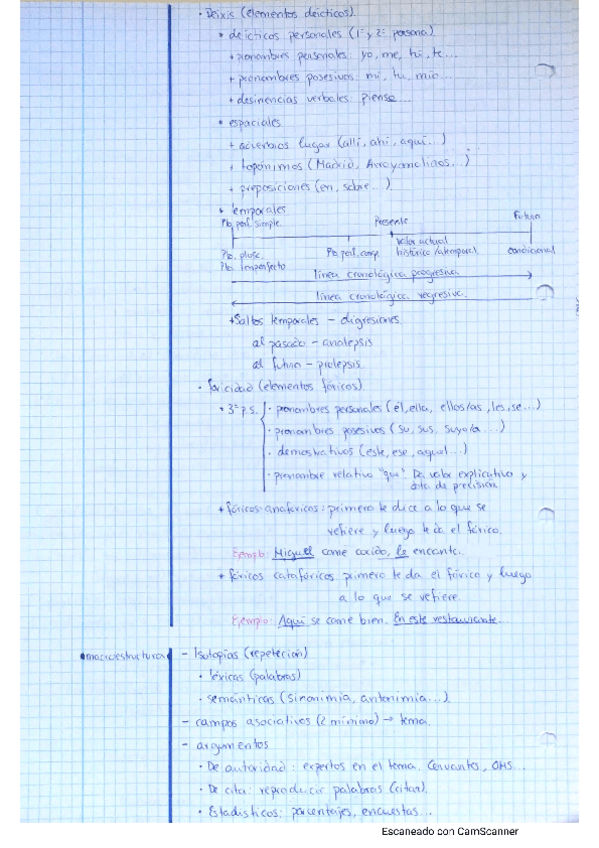 · Deixis (elementos deícticos).
• deícticos personales (1ª y 2ª persona)
+ pronombres personales: yo, me, tú, te...
+ pronombres posesivos: mi, tu, mío...
+ desinencias verbales: pienso...
• espaciales
+ adverbios lugar (allí, ahí, aquí...)
+ topónimos (Madrid, Arroyomolinos...)
+ preposiciones (en, sobre...)
• temporales
Pto. perf. simple. Presente Futuro
Pto. plusc. Pto. perf. comp. valor actual condicional
Pto. Imperfecto histórico /atemporal
línea cronológica progresiva
línea cronológica regresiva.
+ Saltos temporales – digresiones
al pasado – analepsis
al futuro – prolepsis
· foricidad (elementos fóricos)
• 3ª p.s. · pronombres personales (él, ella, ellos/as, les, se...)
· pronombres posesivos (su, sus, suyo/a...)
· demostrativos (este, ese, aquel...)
· pronombre relativo "que". Da valor explicativo y
dota de precisión
+ fóricos anafóricos: primero te dice a lo que se
refiere y luego te da el fórico.
Ejemplo: Miguel come cocido, le encanta.
+ fóricos catafóricos primero te da el fórico y luego
a lo que se refiere.
Ejemplo: Aquí se come bien. En este restaurante...
•macroestructura – Isotopías (repetición)
· léxicas (palabras)
· semánticas (sinonimia, antonimia...).
– campos asociativos (2 mínimo) → tema.
– argumentos
· De autoridad: expertos en el tema. Cervantes, OMS...
· De cita: reproducir palabras (citar).
· Estadísticos: porcentajes, encuestas...
Escaneado con CamScanner